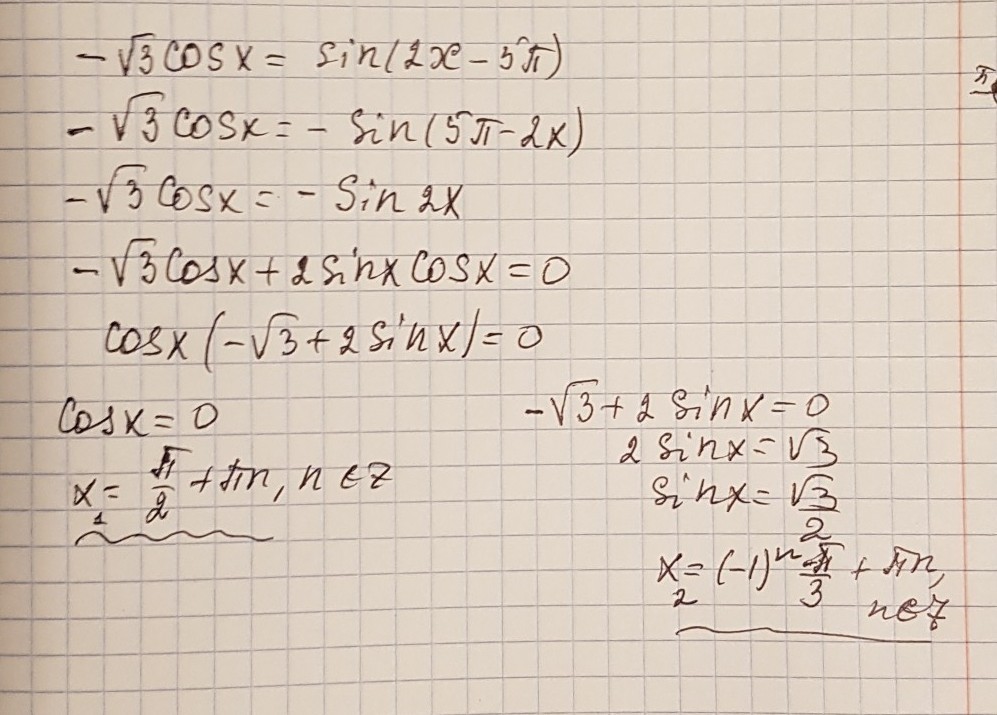 -√3 cosx = sin(2x - 5π)
-√3 cosx = - sin(5π - 2x)
-√3 cosx = - sin 2x
-√3 cosx + 2 sinx cosx = 0
cosx (-√3 + 2 sinx) = 0
cosx = 0
x₁ = π/2 + πn, n ∈ z
-√3 + 2 sinx = 0
2 sinx = √3
sinx = √3/2
x₂ = (-1)ⁿ π/3 + πn,
n ∈ z
π